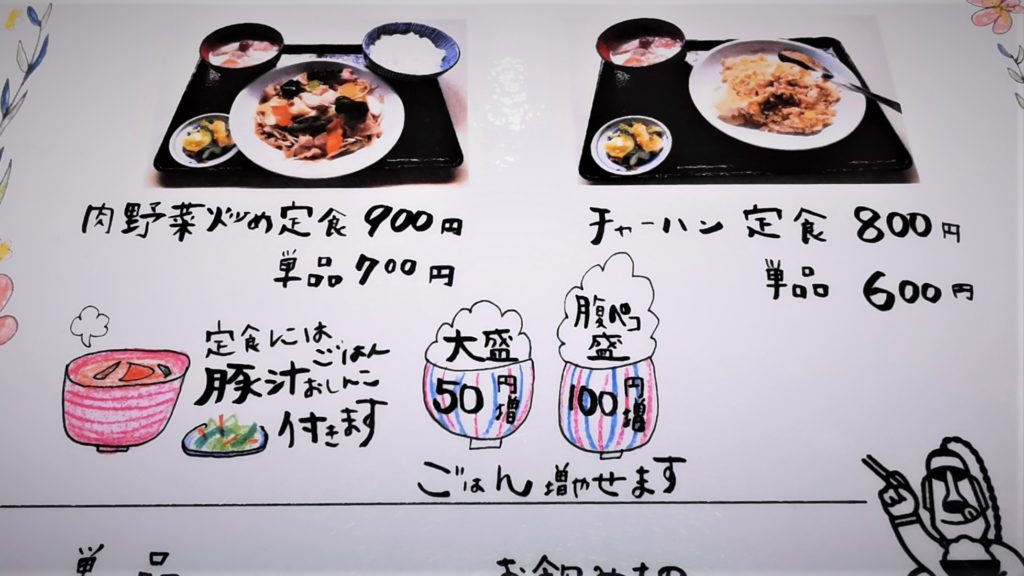 肉野菜炒め定食 900円
単品 700円
チャーハン 定食 800円
単品 600円
定食には
ごはん
豚汁おしんこ
付きます
大盛
50円増
腹ペコ
盛
100円増
ごはん 増やせます
単品
お飲みもの